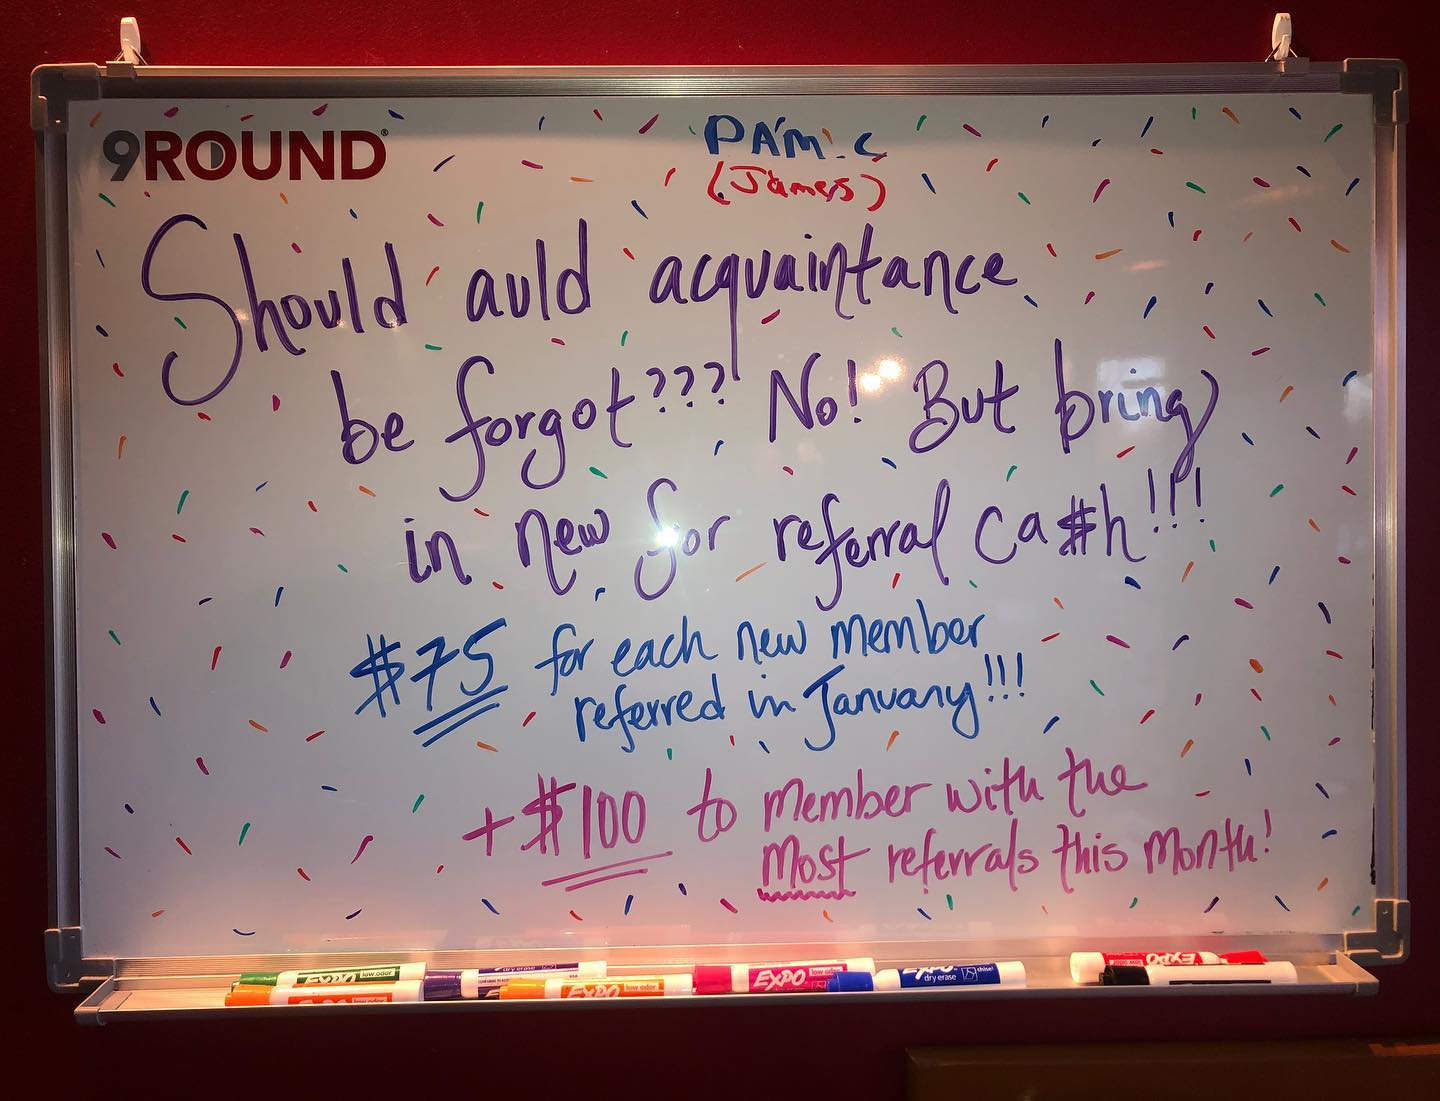 9ROUND®
PAM.C
(James)
Should auld acquaintance
be forgot??? No! But bring
in new for referral ca$h!!!
$75 for each new member
referred in January!!!
+ $100 to member with the
most referrals this month!
EXPO low odor
dry erase
EXPO low odor
EXPO low odor
EXPO low odor
EXPO dry erase chisel
EXPO low odor